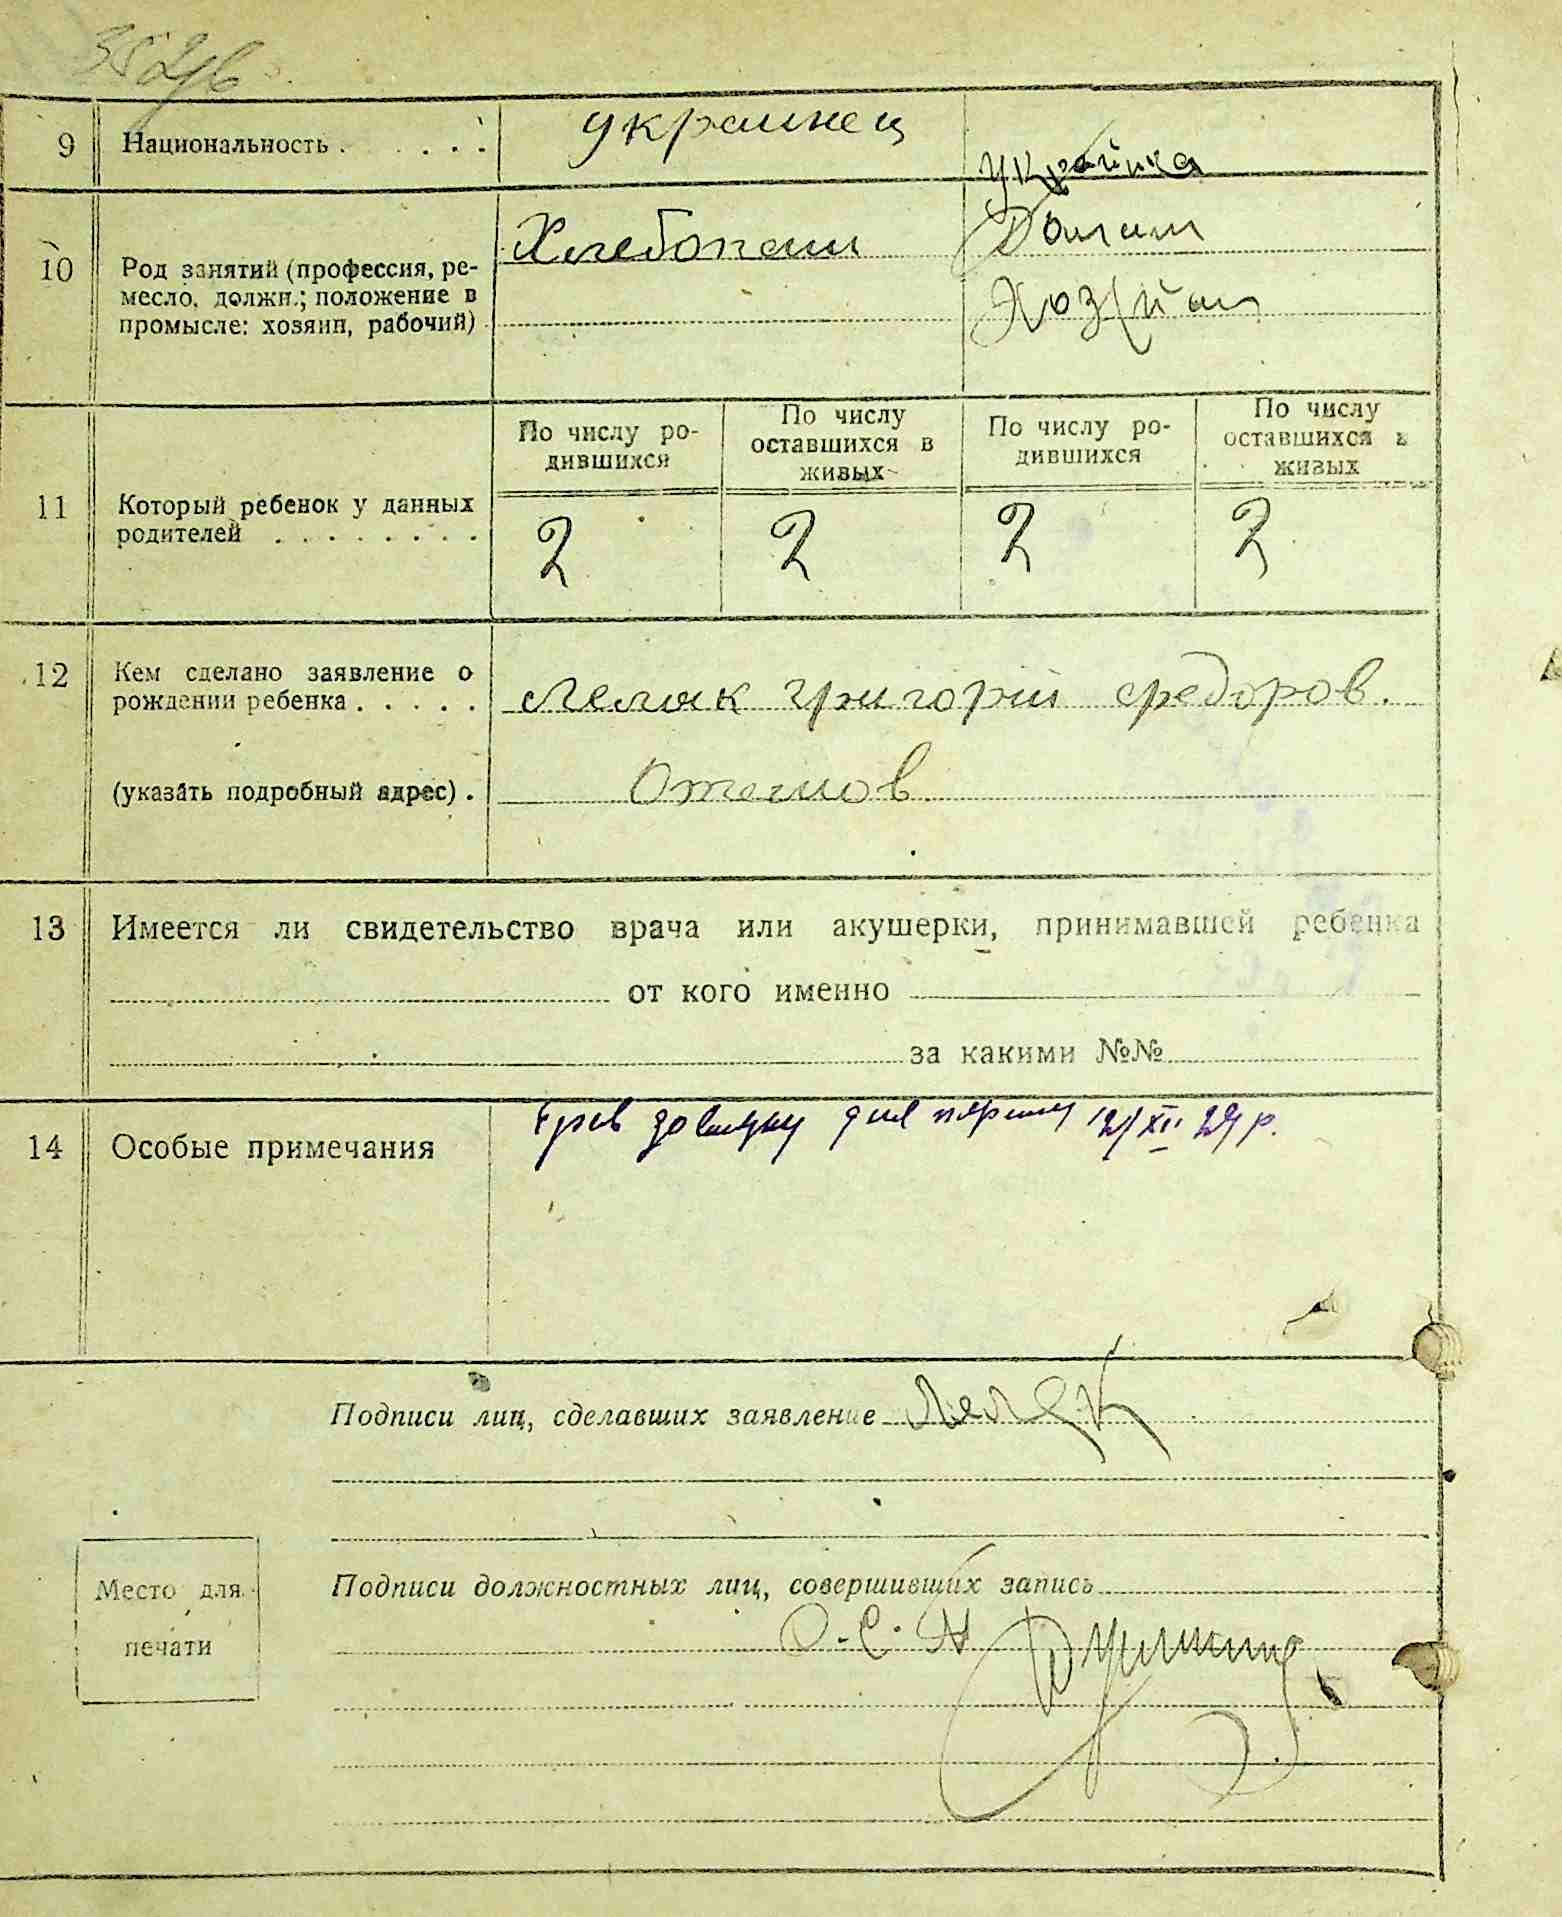 9 Национальность . . . . . украинец
Украинка
10 Род занятий (профессия, ре-
месло, должн.; положение в
промысле: хозяин, рабочий)
Хлебопаш
Домаш
Хозяй
По числу ро-
дившихся
По числу
оставшихся в
живых
По числу ро-
дившихся
По числу
оставшихся в
живых
11 Который ребенок у данных
родителей . . . . . . . .
2 2 2 2
12 Кем сделано заявление о
рождении ребенка . . . . .
Леляк григорий федоров.
(указать подробный адрес) .
13 Имеется ли свидетельство врача или акушерки, принимавшей ребенка
от кого именно
за какими №№
14 Особые примечания
12/XII 29 р.
Подписи лиц, сделавших заявление Леляк
Место для
печати
Подписи должностных лиц, совершивших запись